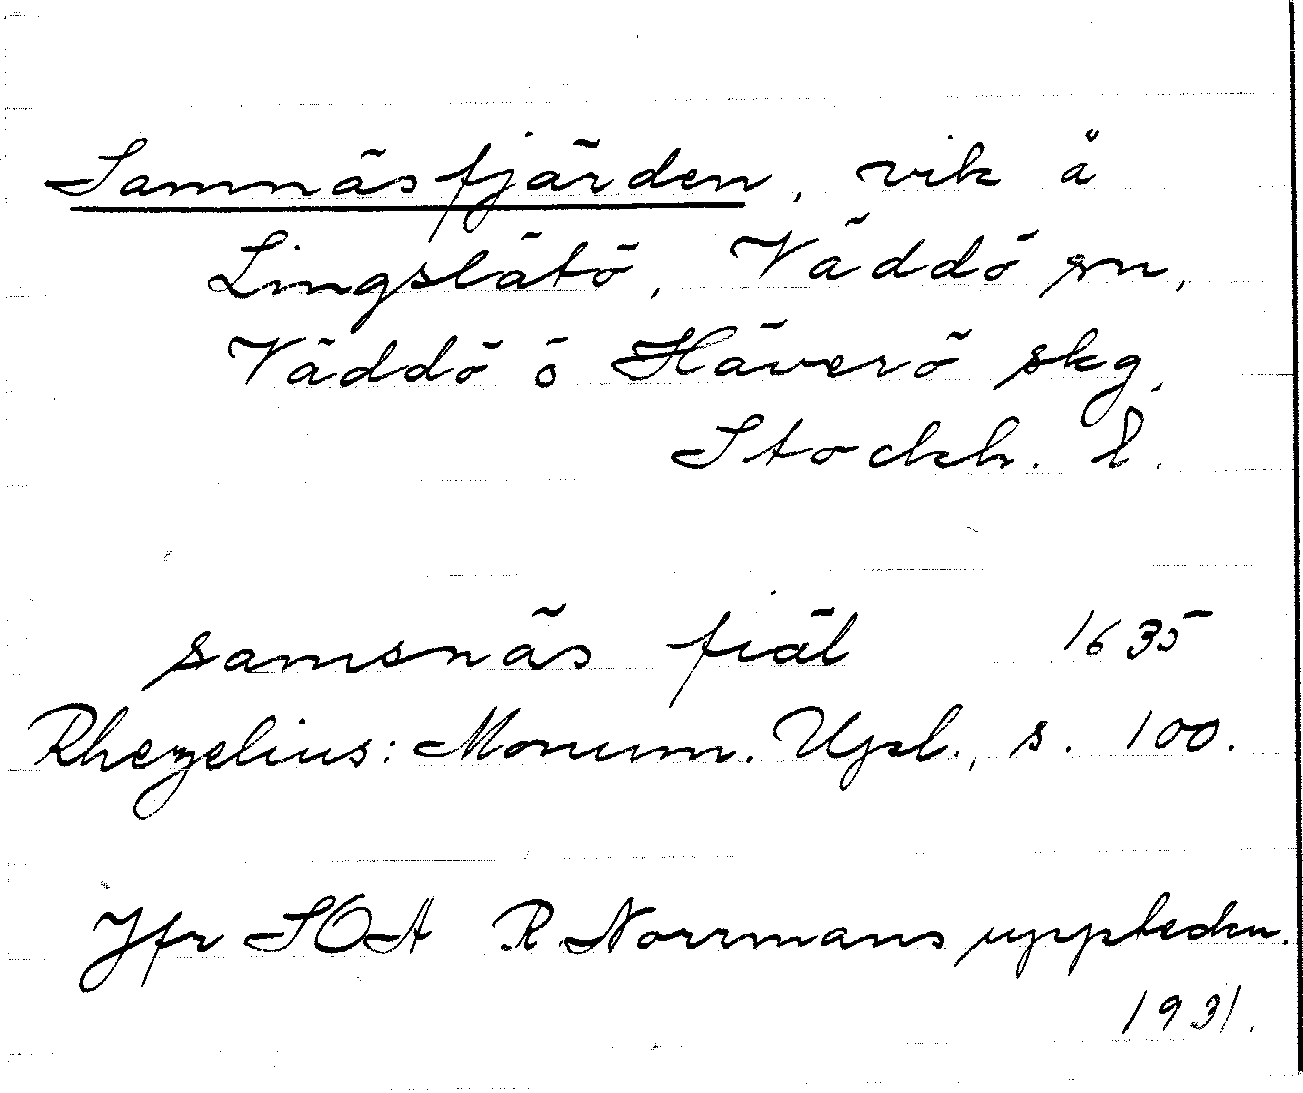 Samnäsfjärden, vik å
Lingslätö, Väddö sn,
Väddö o Häverö skg,
Stockh. l.
samsnäs fiäl 1635
Rhezelius: Monum. Upl., s. 100.
Jfr SOA R Norrmans uppteckn.
1931.